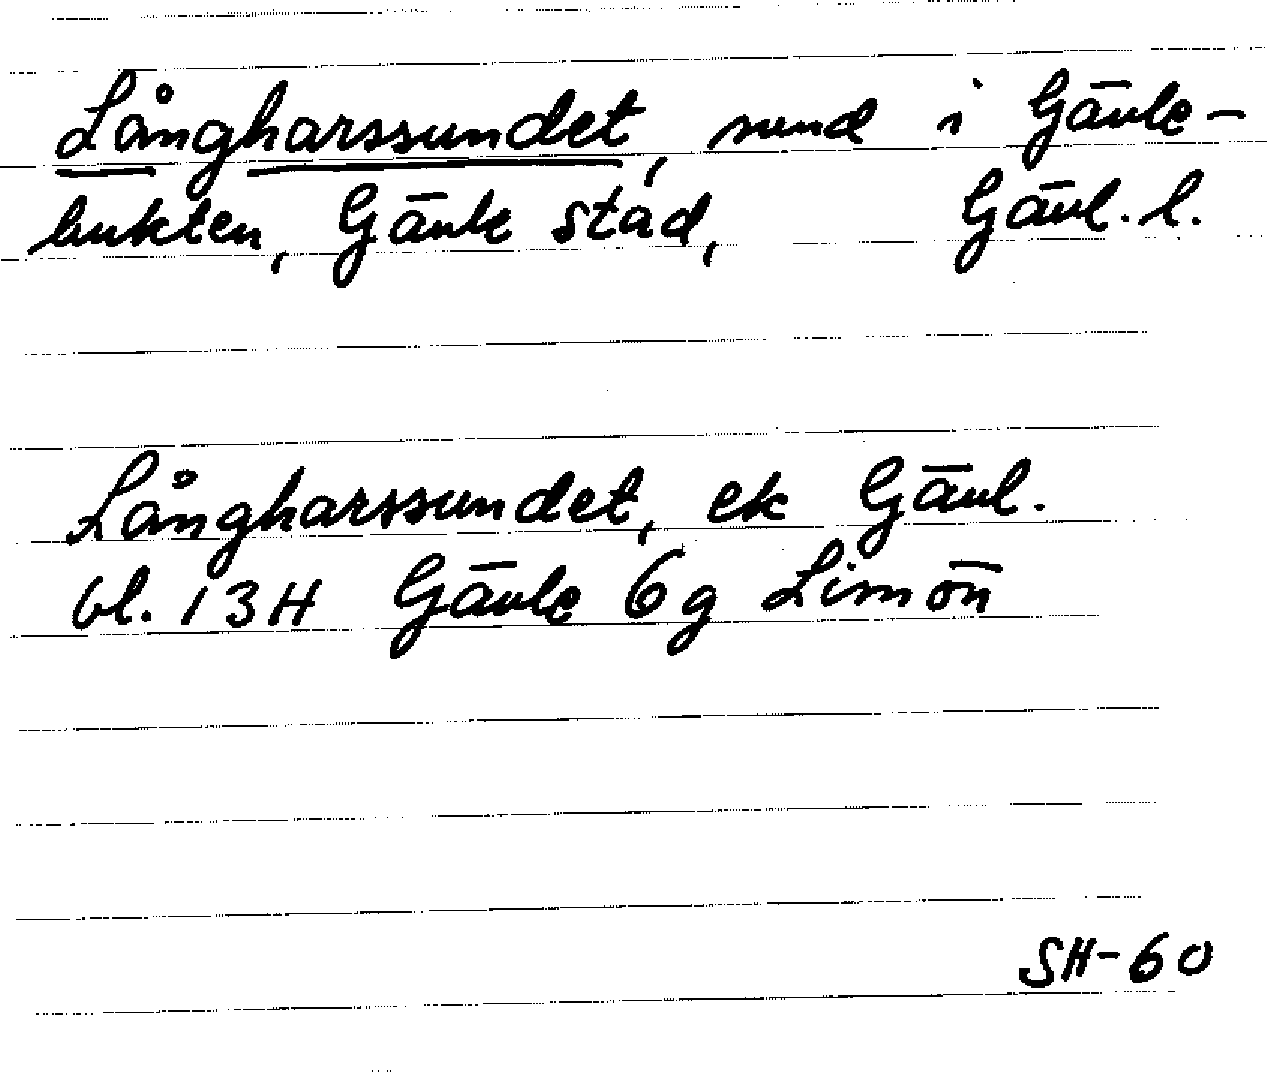 Långharssundet, sund i Gävle-
bukten, Gävle stad, Gävl. l.
Långharssundet, ek Gävl.
bl. 13H Gävle 6g Limön
SH-60